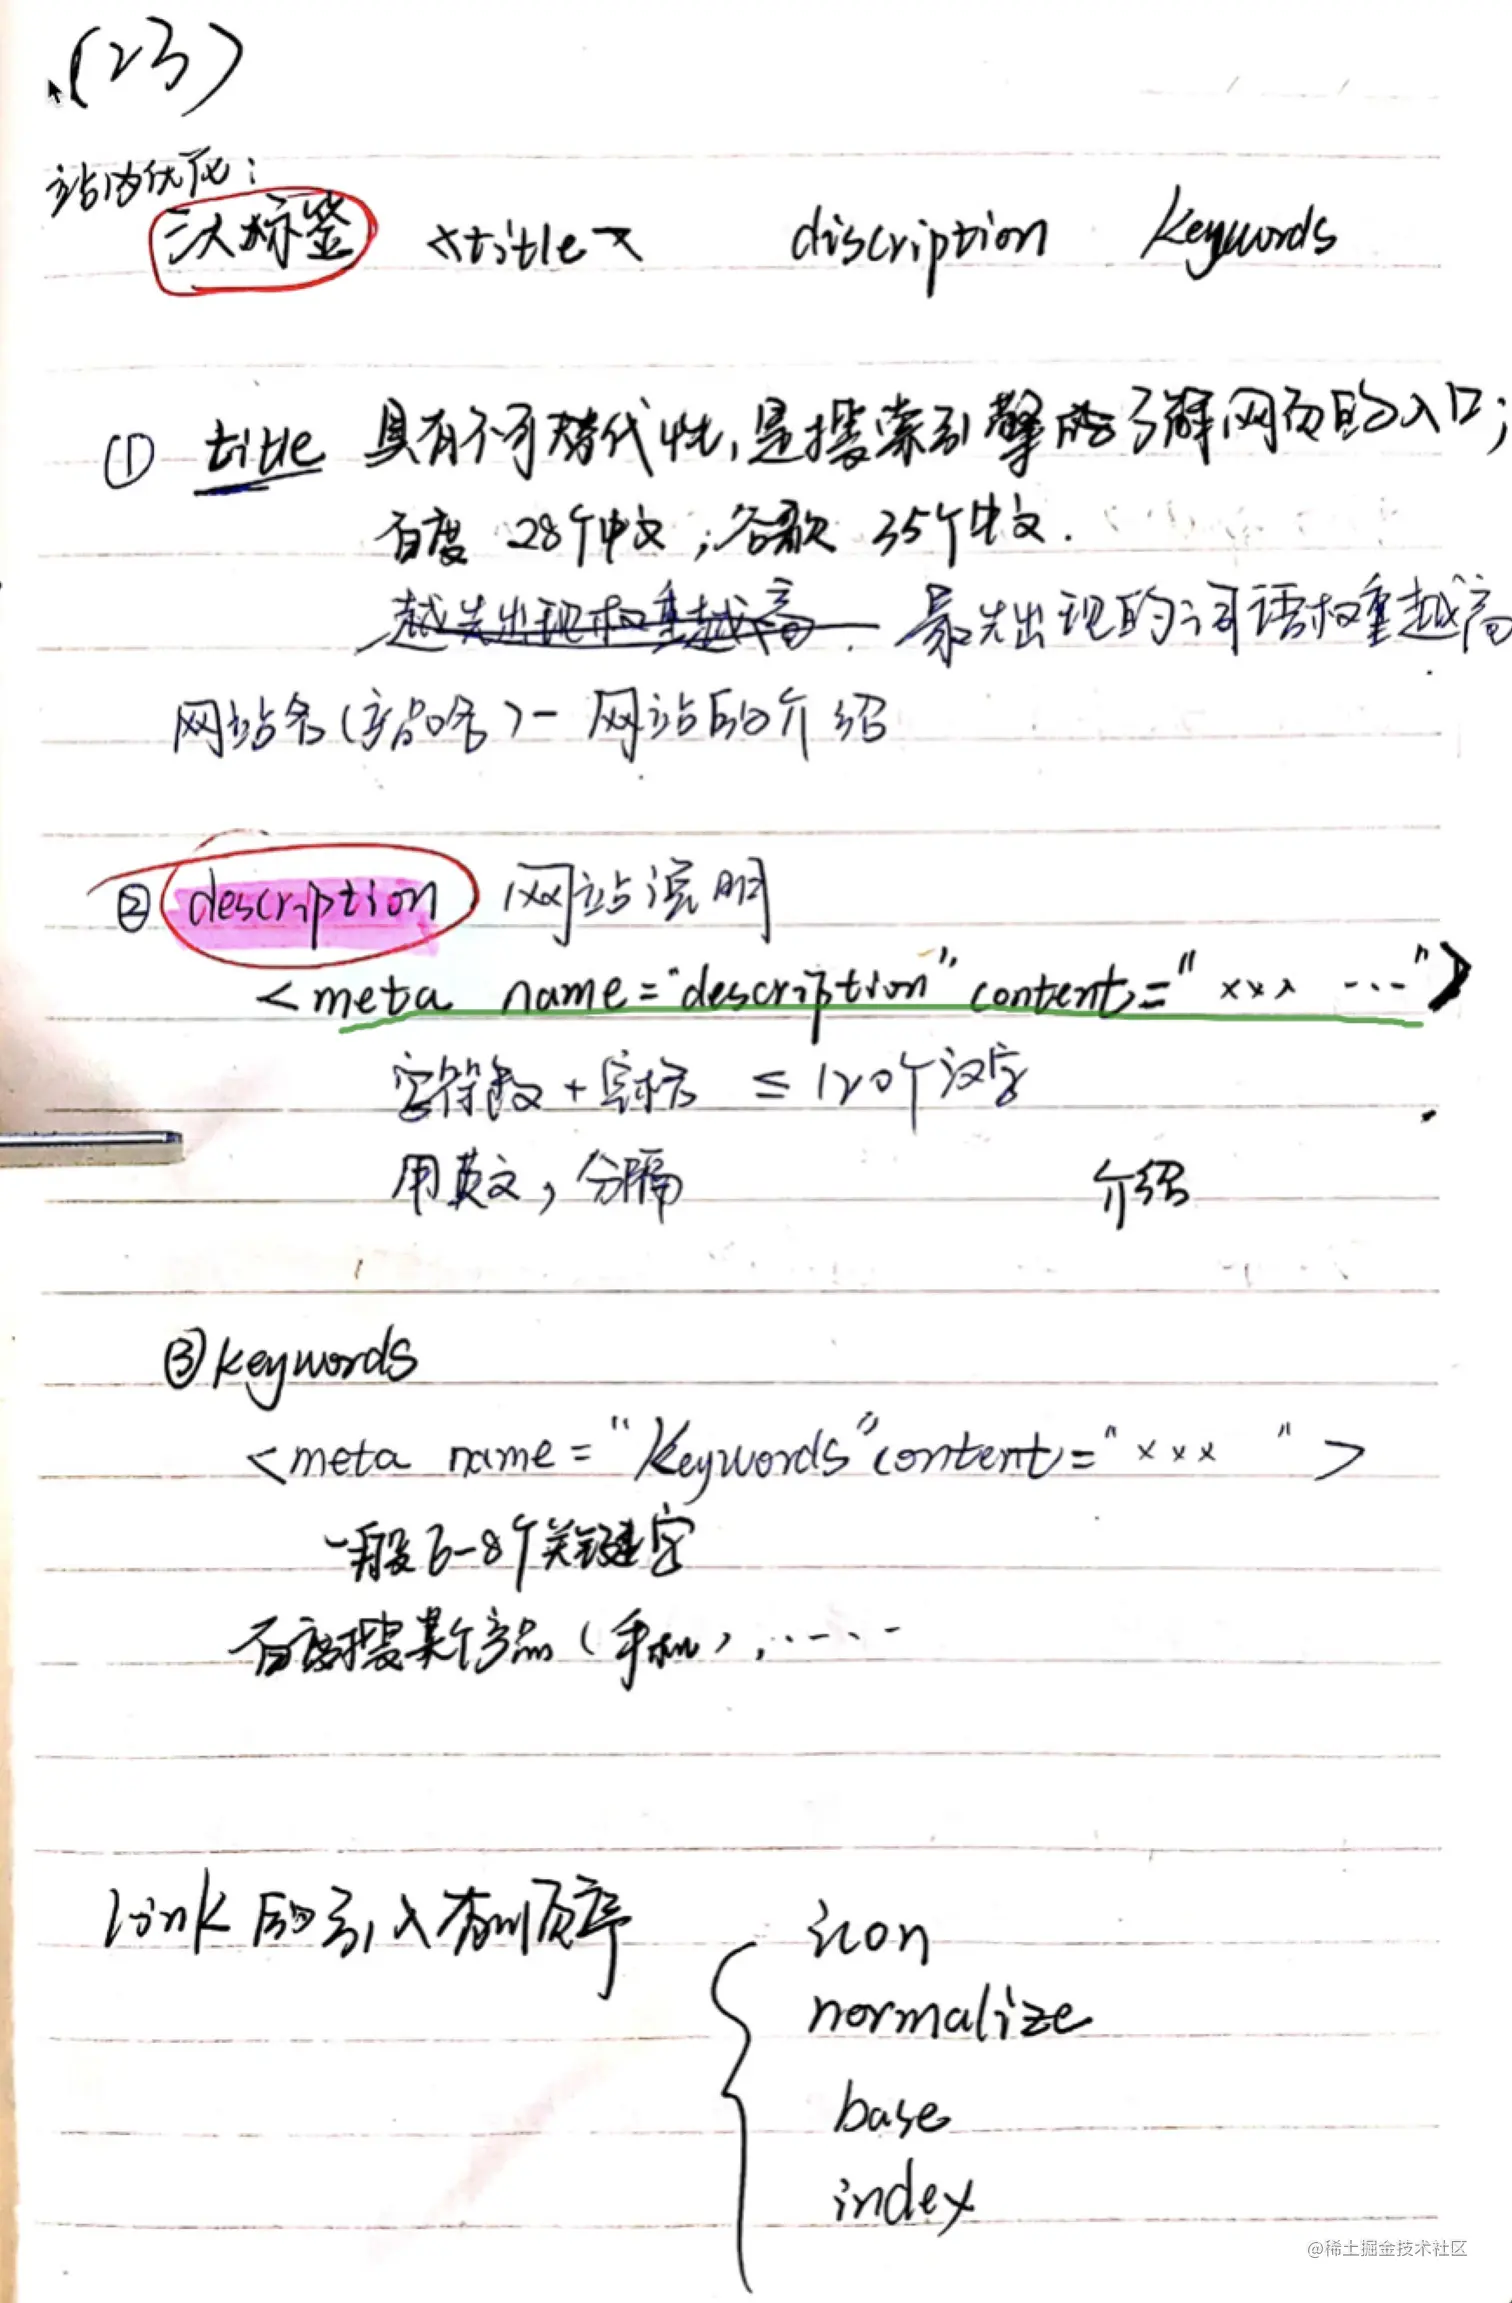 (23)
站内优化:
三大标签 <title> discription Keywords
① title 具有不可替代性,是搜索引擎了解网页的入口;
百度 28个中文;谷歌 35个中文.
越先出现权重越高. 最先出现的词语权重越高
网站名(产品名)- 网站的介绍
② description 网站说明
<meta name="description" content="xxx ...">
字符数 + ≤120个汉字
用英文,分隔 介绍
③ keywords
<meta name="Keywords" content="xxx ">
一般6-8个关键字
百度搜某个产品(手机),......
link的引入有顺序
icon
normalize
base
index
@稀土掘金技术社区